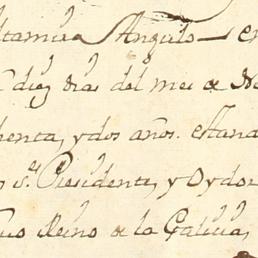 ltamira Angulo en
diez dias del mes de No
henta, y dos años. estan
s. s.res Presidente, y Oydor
uo Reino de la Galicia,